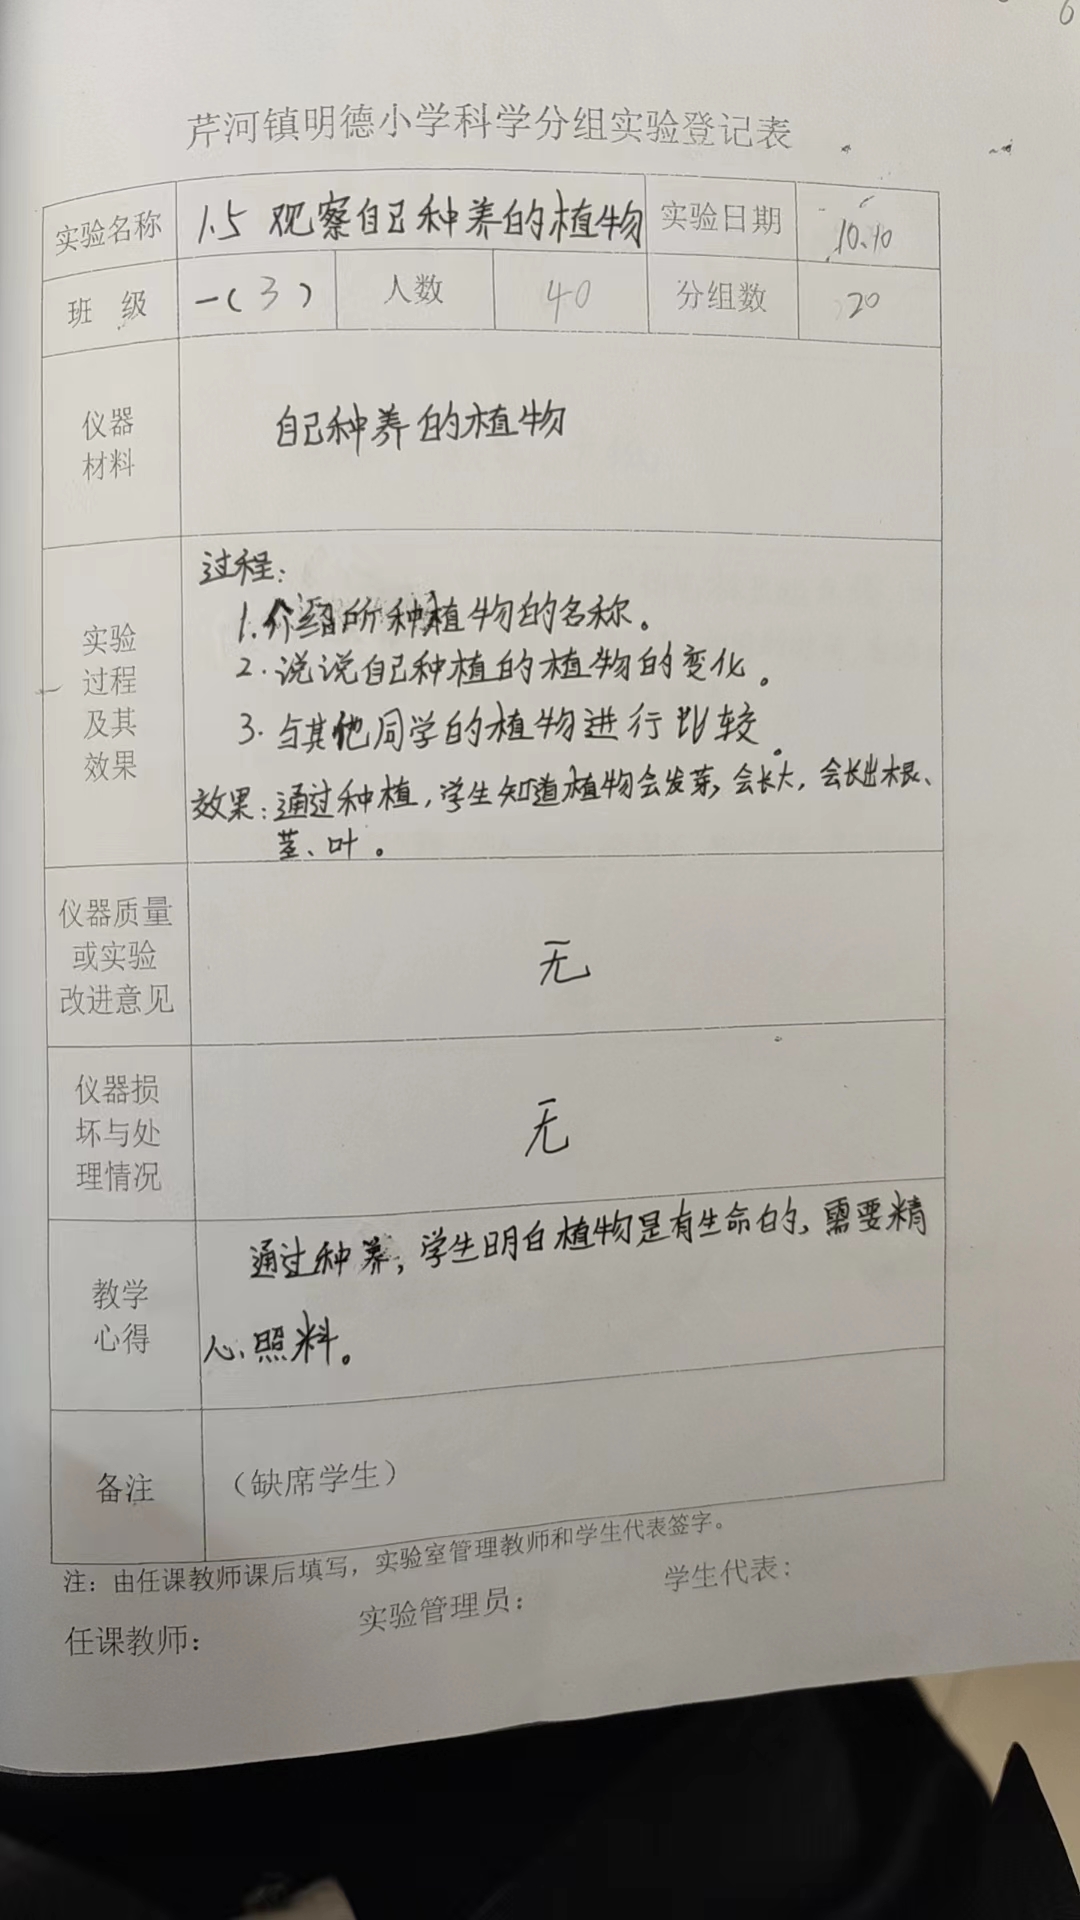 6
芹河镇明德小学科学分组实验登记表
实验名称 1.5 观察自己种养的植物 实验日期 10.10
班 级 一(3) 人数 40 分组数 20
仪器
材料
自己种养的植物
实验
过程
及其
效果
过程:
1.介绍所种植物的名称。
2.说说自己种植的植物的变化。
3.与其他同学的植物进行比较。
效果:通过种植,学生知道植物会发芽,会长大,会长出根、
茎、叶。
仪器质量
或实验
改进意见
无
仪器损
坏与处
理情况
无
教学
心得
通过种养,学生明白植物是有生命的,需要精
心照料。
备注 (缺席学生)
注:由任课教师课后填写,实验室管理教师和学生代表签字。
任课教师: 实验管理员: 学生代表: